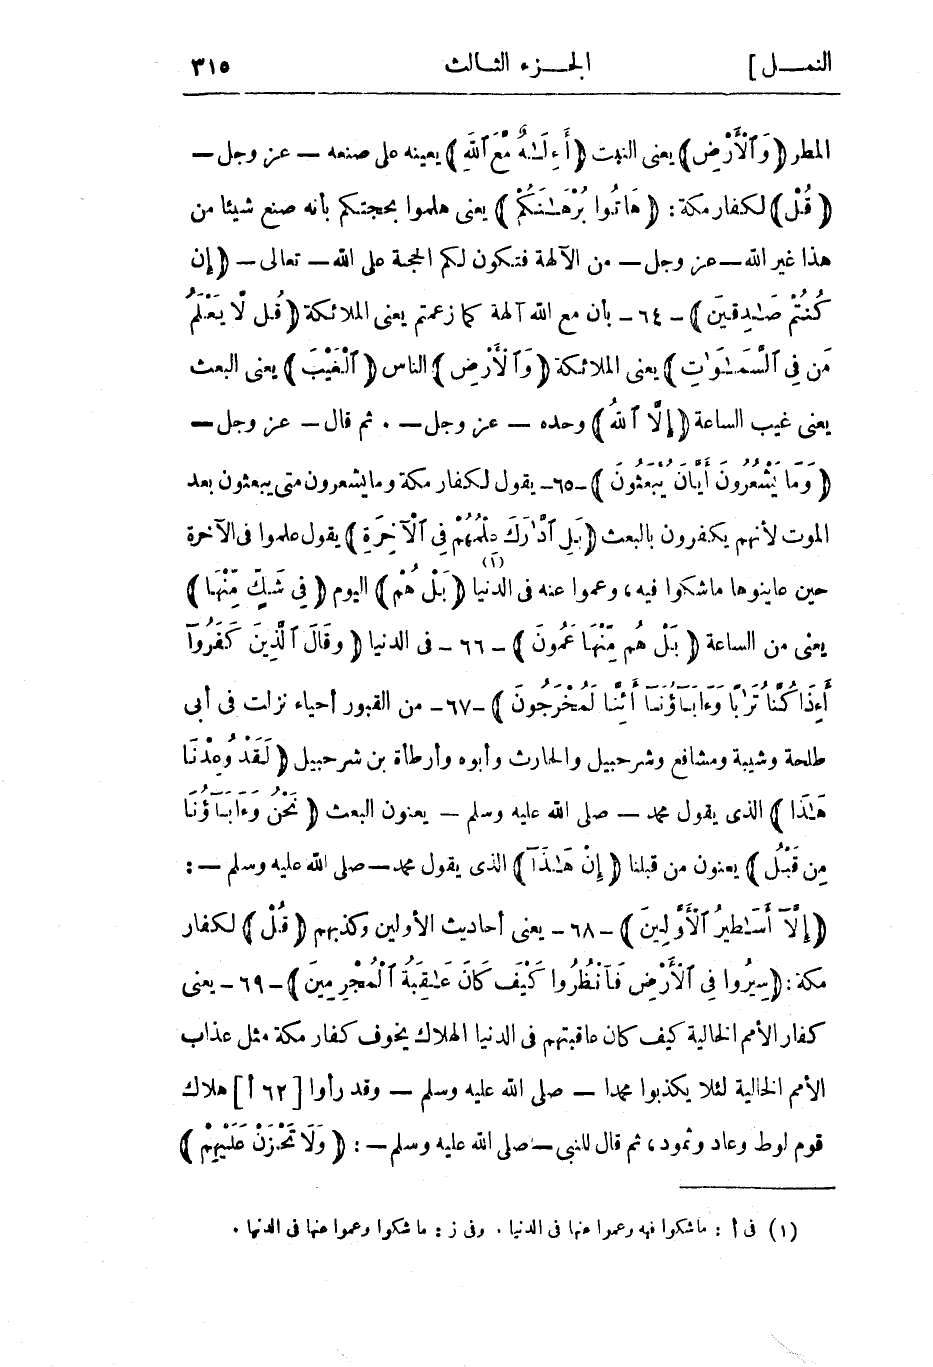 النمــل ] الجــزء الثــالث ٣١٥
المطر (وَٱلْأَرْضِ) يعنى النبت (أَءِلَـٰهٌ مَّعَ ٱللَّهِ) يعينه على صنعه — عز وجل —
(قُلْ) لكفار مكة : (هَاتُوا بُرْهَـٰنَكُمْ) يعنى هلموا بحجتكم بأنه صنع شيئا من
هذا غير الله — عز وجل — من الآلهة فتكون لكم الحجة على الله — تعالى — (إِن
كُنتُمْ صَـٰدِقِينَ) - ٦٤ - بأن مع الله آلهة كما زعمتم يعنى الملائكة (قُل لَّا يَعْلَمُ
مَن فِى ٱلسَّمَـٰوَٰتِ) يعنى الملائكة (وَٱلْأَرْضِ) الناس (ٱلْغَيْبَ) يعنى البعث
يعنى غيب الساعة (إِلَّا ٱللَّهُ) وحده — عز وجل — . ثم قال — عز وجل —
(وَمَا يَشْعُرُونَ أَيَّانَ يُبْعَثُونَ) - ٦٥ - يقول لكفار مكة وما يشعرون متى يبعثون بعد
الموت لأنهم يكفرون بالبعث (بَلِ ٱدَّٰرَكَ عِلْمُهُمْ فِى ٱلْآخِرَةِ) يقول علموا فى الآخرة
حين عاينوها ما شكوا فيه ، وعموا عنه فى الدنيا (١) (بَلْ هُمْ) اليوم (فِى شَكٍّ مِّنْهَا)
يعنى من الساعة (بَلْ هُم مِّنْهَا عَمُونَ) - ٦٦ - فى الدنيا (وقَالَ ٱلَّذِينَ كَفَرُوٓا
أَءِذَا كُنَّا تُرَٰبًا وَءَابَآؤُنَآ أَئِنَّا لَمُخْرَجُونَ) - ٦٧ - من القبور أحياء نزلت فى أبى
طلحة وشيبة ومشافع وشرحبيل والحارث وأبوه وأرطأة بن شرحبيل (لَقَدْ وُعِدْنَا
هَـٰذَا) الذى يقول محمد — صلى الله عليه وسلم — يعنون البعث (نَحْنُ وَءَابَآؤُنَا
مِن قَبْلُ) يعنون من قبلنا (إِنْ هَـٰذَآ) الذى يقول محمد — صلى الله عليه وسلم — :
(إِلَّآ أَسَـٰطِيرُ ٱلْأَوَّلِينَ) - ٦٨ - يعنى أحاديث الأولين وكذبهم (قُلْ) لكفار
مكة : (سِيرُوا فِى ٱلْأَرْضِ فَٱنْظُرُوا كَيْفَ كَانَ عَـٰقِبَةُ ٱلْمُجْرِمِينَ) - ٦٩ - يعنى
كفار الأمم الخالية كيف كان عاقبتهم فى الدنيا الهلاك يخوف كفار مكة مثل عذاب
الأمم الخالية لئلا يكذبوا محمدا — صلى الله عليه وسلم — وقد رأوا [ ٦٢ أ ] هلاك
قوم لوط وعاد وثمود ، ثم قال للنبى — صلى الله عليه وسلم — : (وَلَا تَحْزَنْ عَلَيْهِمْ)
(١) فى أ : ما شكوا فيه وعموا عنها فى الدنيا . وفى ز : ما شكوا وعموا عنها فى الدنيا .